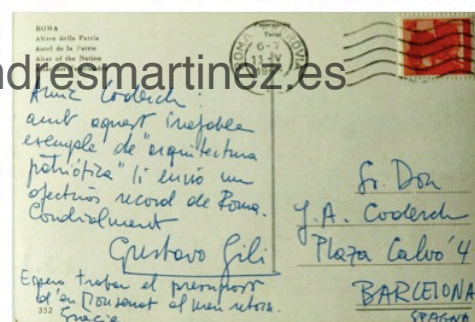 ROMA
Altare della Patria
Autel de la Patrie
Altar of the Nation
ndresmartinez.es
ROMA
6-7
Amic Coderch:
amb aquest inefable
exemple de "arquitectura
patriòtica" li envio un
afectuós record de Roma.
Cordialment
Gustavo Gili
Espero trobar el pressupost
d'en Monsenat al meu retorn.
352 Gràcies
Sr. Don
J. A. Coderch
Plaza Calvó 4
BARCELONA
SPAGNA